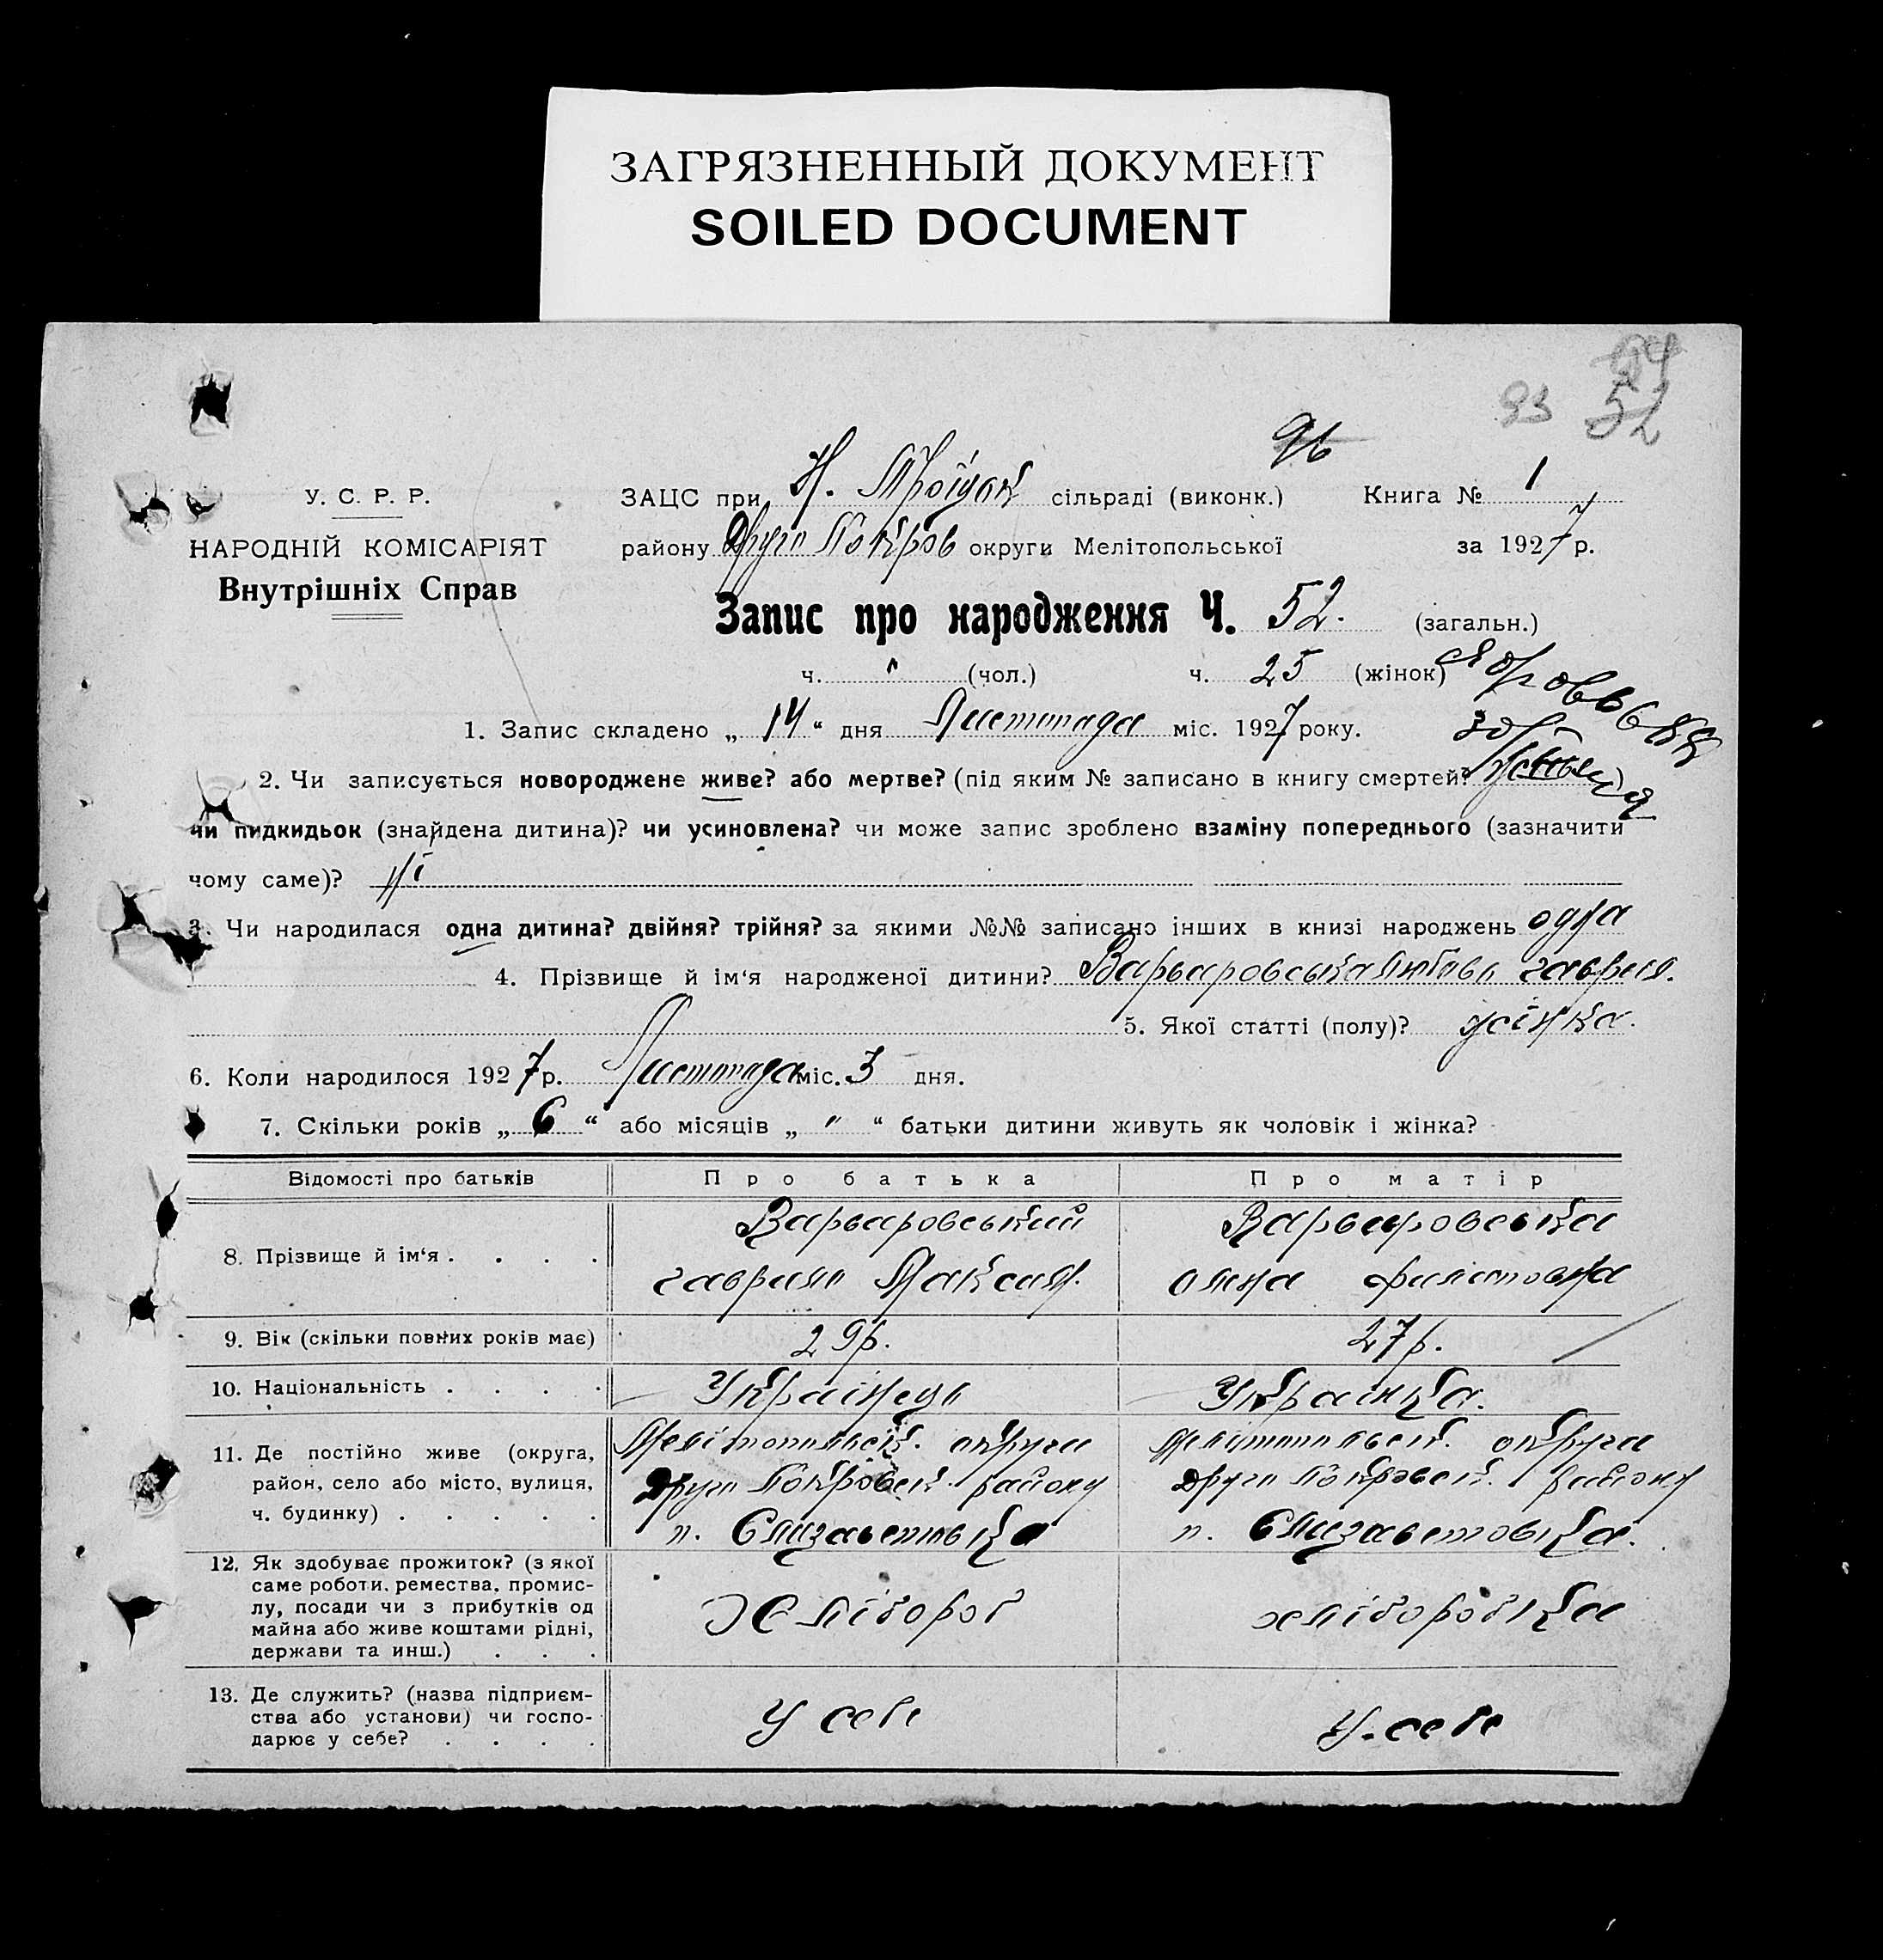 ЗАГРЯЗНЕННЫЙ ДОКУМЕНТ
SOILED DOCUMENT
93 52
96
У. С. Р. Р.
НАРОДНІЙ КОМІСАРІЯТ
Внутрішніх Справ
ЗАЦС при Н. Троїцьк сільраді (виконк.) Книга № 1
району Друго Покров округи Мелітопольської за 1927 р.
Запис про народження Ч. 52. (загальн.)
ч. " (чол.) ч. 25 (жінок)
1. Запис складено „ 14 “ дня Листопада міс. 1927 року.
2. Чи записується новороджене живе? або мертве? (під яким № записано в книгу смертей?
чи підкидьок (знайдена дитина)? чи усиновлена? чи може запис зроблено взаміну попереднього (зазначити
чому саме)? Ні
3. Чи народилася одна дитина? двійня? трійня? за якими №№ записано інших в книзі народжень одна
4. Прізвище й ім‘я народженої дитини? Варваровська Любовь Гаврил.
5. Якої статті (полу)? жінка.
6. Коли народилося 1927 р. Листопада міс. 3 дня.
7. Скільки років „ 6 “ або місяців „ " “ батьки дитини живуть як чоловік і жінка?
Відомості про батьків Про батька Про матір
8. Прізвище й ім‘я . . . . Варваровський Гаврило Максим. Варваровська Олена Филиповна
9. Вік (скільки повних років має) 29 р. 27 р.
10. Національність . . . . Українець Українка.
11. Де постійно живе (округа, Мелітопольськ. округи Мелітопольськ. округи
район, село або місто, вулиця, Друго Покровськ. району Друго Покровськ. району
ч. будинку) . . . . . п. Єлизаветовка п. Єлизаветовка.
12. Як здобуває прожиток? (з якої
саме роботи, ремества, промис-
лу, посади чи з прибутків од Хлібороб хліборобка
майна або живе коштами рідні,
держави та инш.) . . .
13. Де служить? (назва підприєм-
ства або установи) чи госпо- У себе У себе
дарює у себе? . . . .